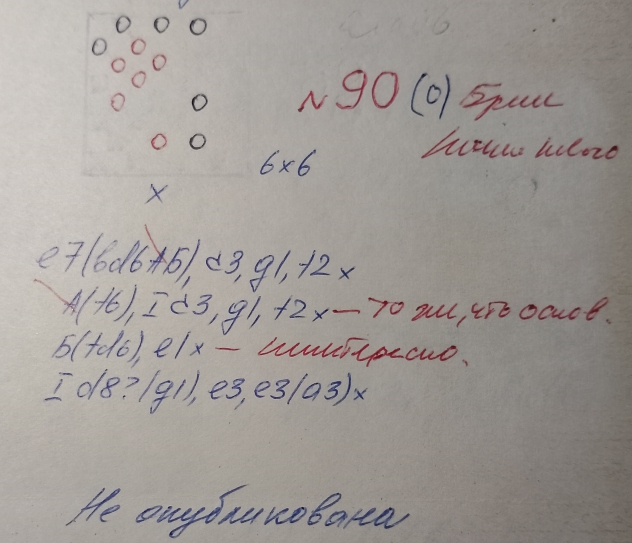 №90 (0)
6x6
x
e7(bd6AБ), c3, g1, f2x
A(f6), I c3, g1, f2x — то же, что основ.
Б(fd6), e1x — интересно.
I d8?(g1), e3, e3(a3)x
Не опубликована